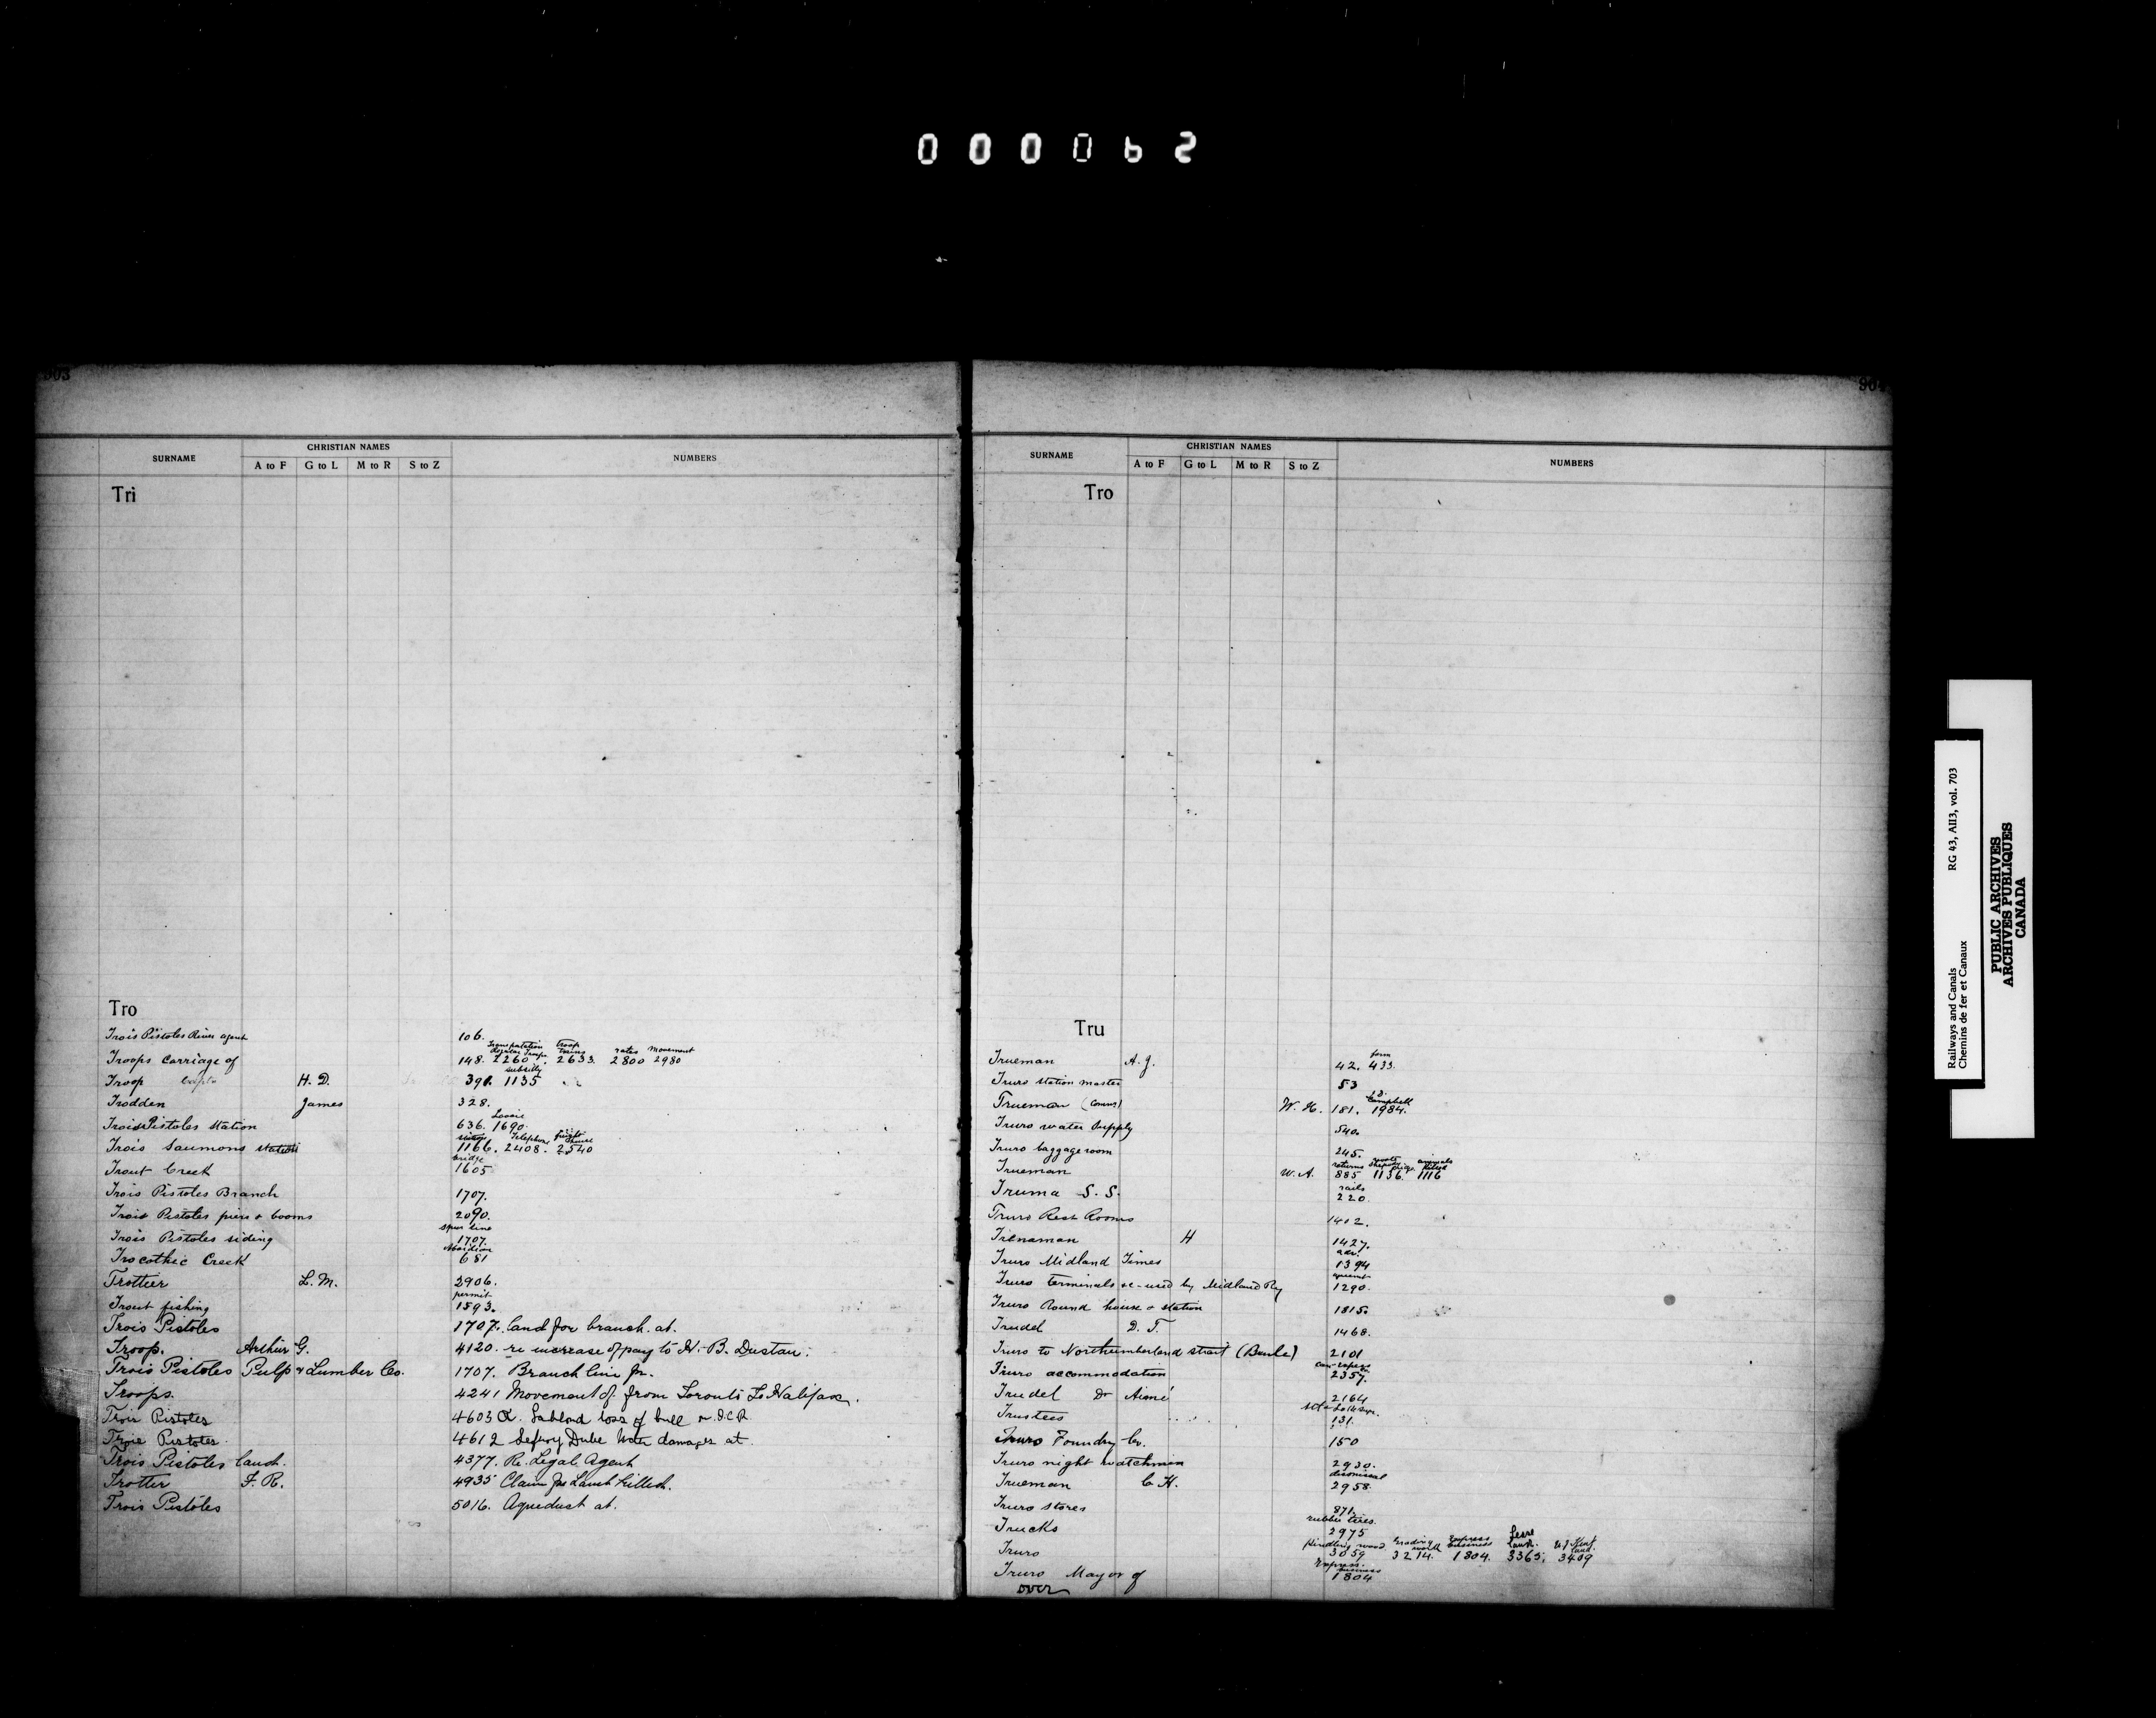 000062
903
SURNAME CHRISTIAN NAMES NUMBERS
A to F G to L M to R S to Z
Tri
Tro
Trois Pistoles River agent 106.
Transportation Regular Troops troop trains rates movement
Troops Carriage of 148. 2260. 2633. 2800 2980
subsidy
Troop H. D. 391. 1135
Trodden James 328.
Trois Pistoles Station 636. 1690.
Telephone freight
Trois Saumons station 1166. 2408. 2540
bridge
Trout Creek 1605
Trois Pistoles Branch 1707.
Trois Pistoles piers & booms 2090.
spur line
Trois Pistoles siding 1707.
Trocothic Creek 681
Trottier L. M. 2906.
permit
Trout fishing 1593.
Trois Pistoles 1707. land for branch at.
Troop. Arthur G. 4120. re increase of pay to H. B. Dustan.
Trois Pistoles Pulp & Lumber Co. 1707. Branch line for.
Troops. 4241 Movement of from Toronto to Halifax.
Trois Pistoles 4603 loss of bull I.C.R.
Trois Pistoles. 4612 Dube Water damages at.
Trois Pistoles land. 4377. Re. Legal Agent
Trotter F. R. 4935 Claim for Lamb killed.
Trois Pistoles 5016. Aqueduct at.
904
SURNAME CHRISTIAN NAMES NUMBERS
A to F G to L M to R S to Z
Tro
Tru
form
Trueman A. J. 42. 433.
Truro station master 53
Campbell
Trueman (Coms) W. H. 181. 1984.
Truro water supply 540.
Truro baggage room 245.
returns animals killed
Trueman W. A. 885 1136. 1116
rails
Truma S. S. 220.
Truro Rest Rooms 1402.
Trenaman H 1427.
adv.
Truro Midland Times 1394
agreemt
Truro terminals re-used by Midland Ry 1290.
Truro Round house & station 1815.
Trudel D. T. 1468.
Truro to Northumberland strait (Benle) 2101
Truro accommodation 2357.
Trudel Dr Aimé 2164
Trustees 131.
Truro Foundry Co. 150
Truro night watchman 2930.
dismissal
Trueman C. H. 2958.
Truro stores 871.
rubber tires.
Trucks 2975
Kindling wood Grading work Express business lease land.
Truro 3059 3214. 1804. 3365. 3409
Express business
Truro Mayor of 1804
over
Railways and Canals RG 43, AII3, vol. 703
Chemins de fer et Canaux
PUBLIC ARCHIVES
ARCHIVES PUBLIQUES
CANADA